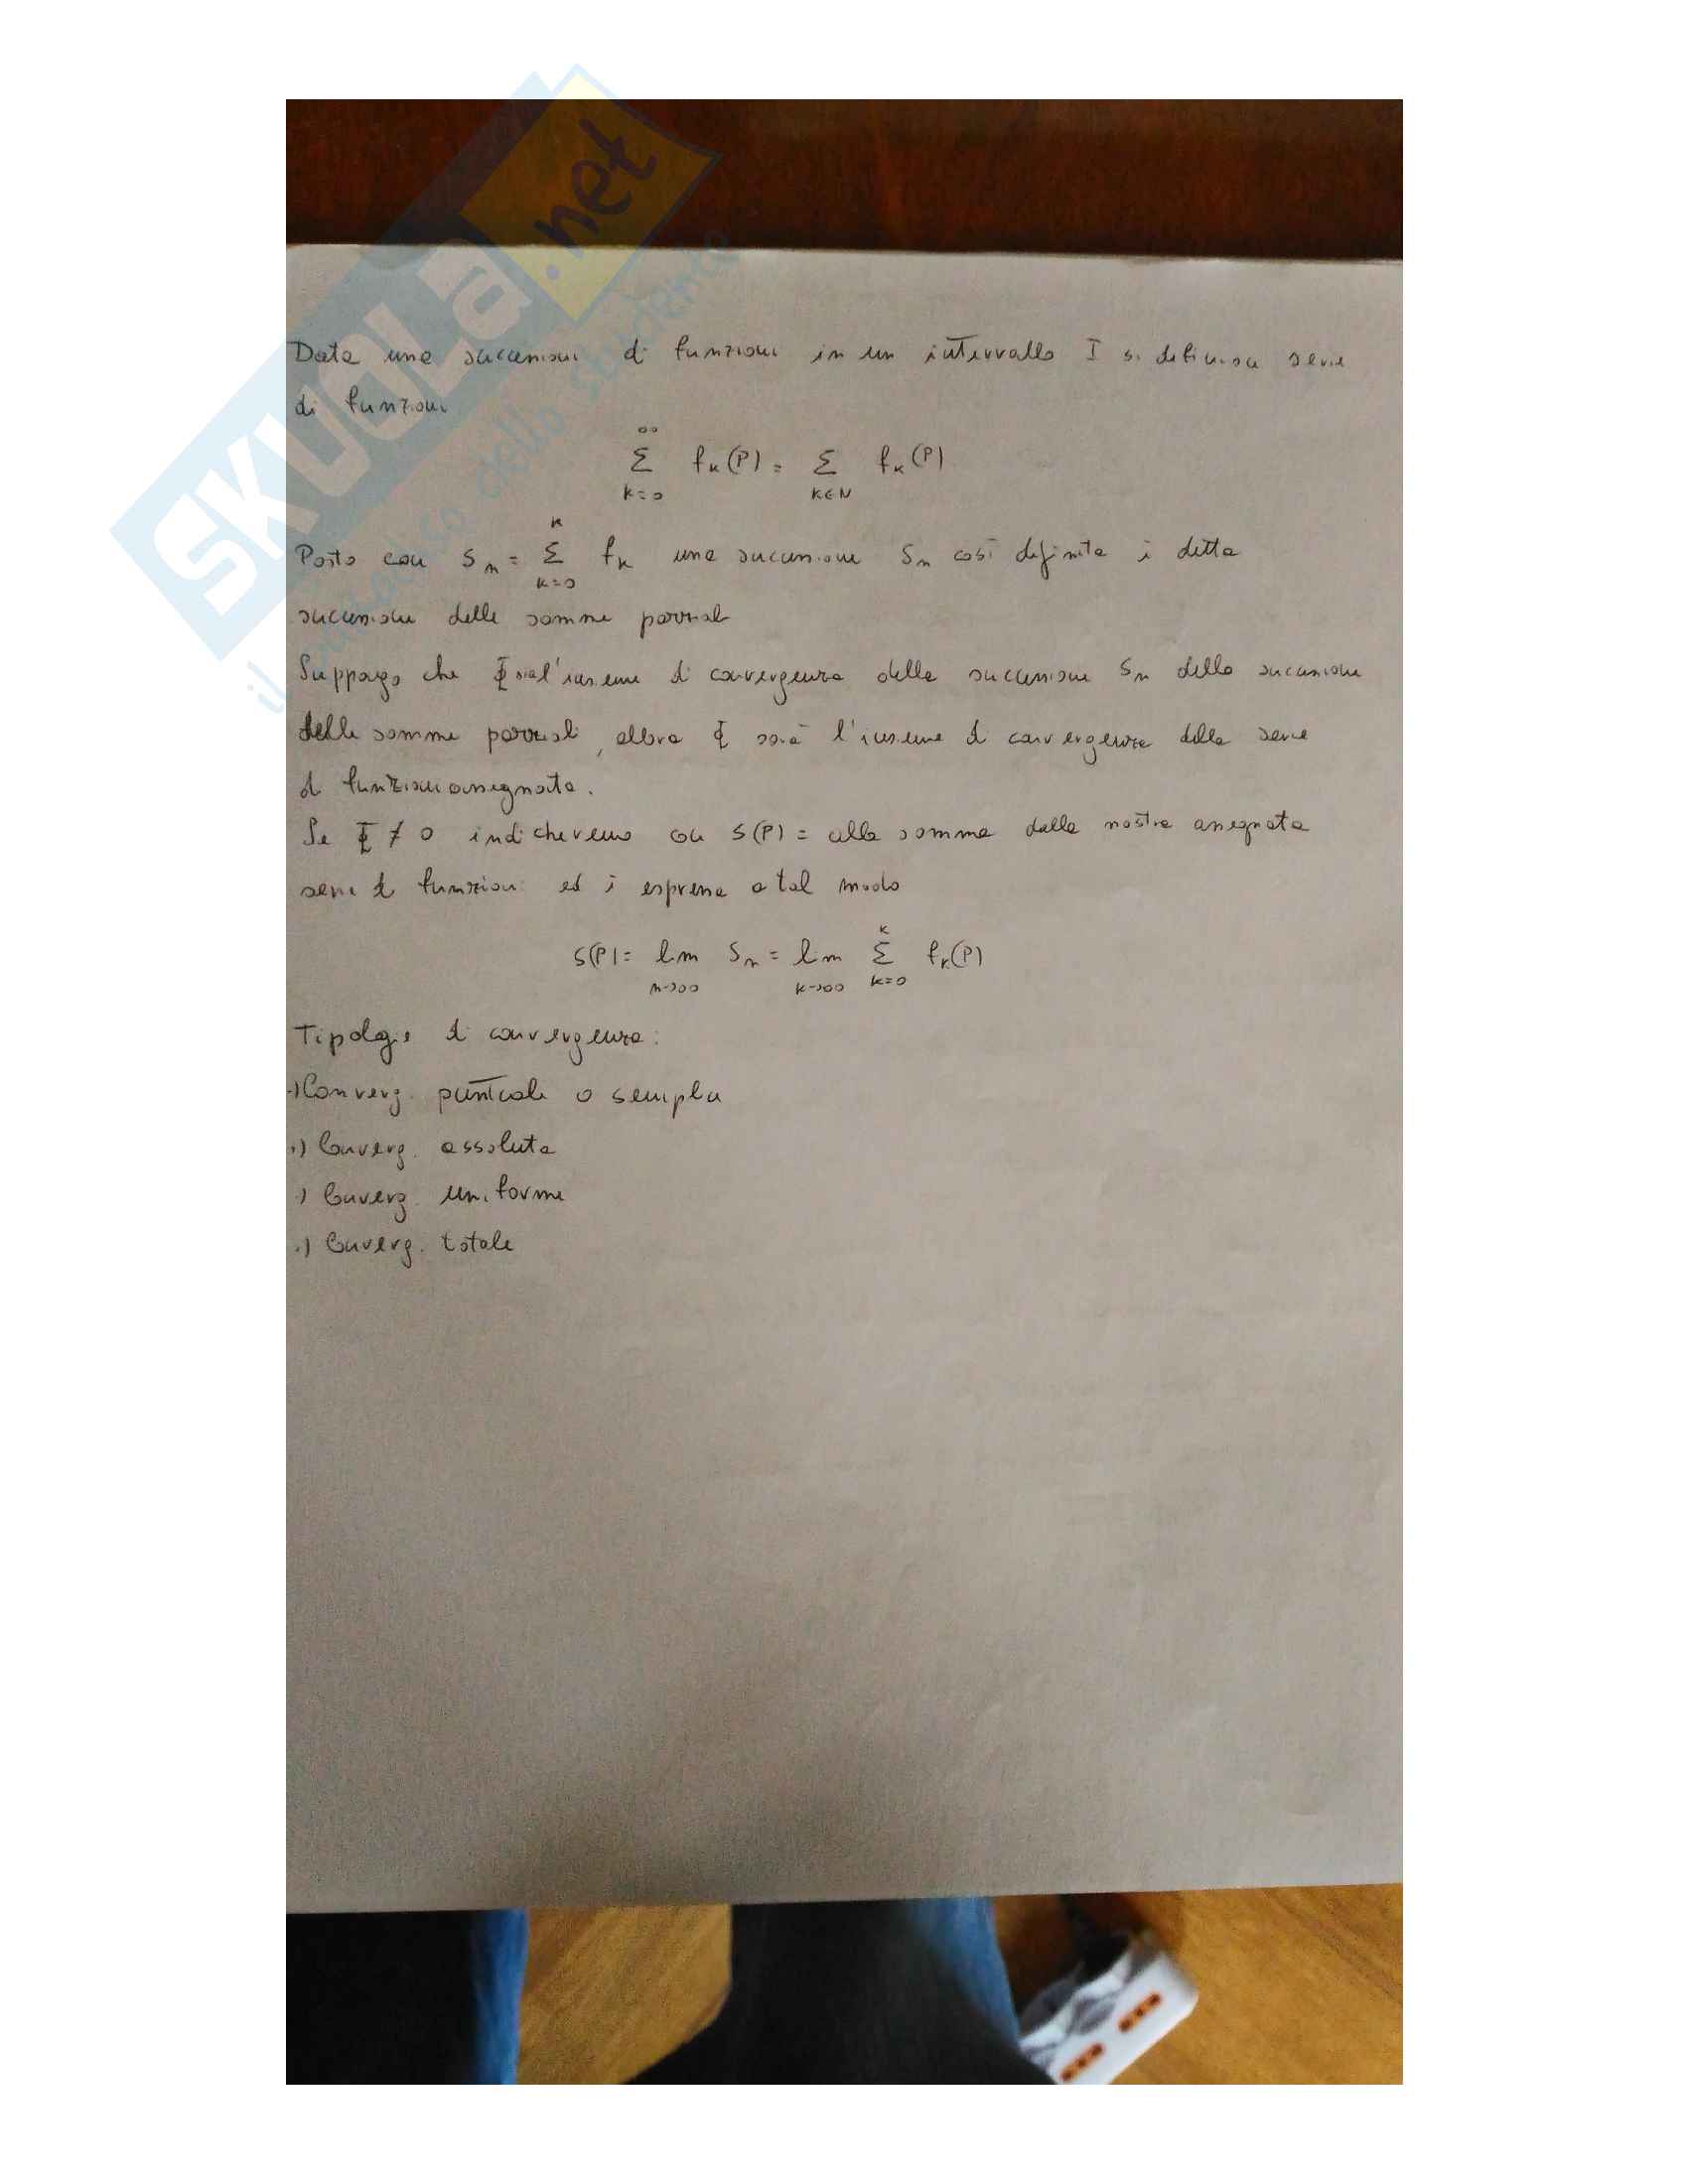 SKUOLa.net
il paradiso dello studente
Data una successione di funzioni in un intervallo I si definisce serie
di funzioni
∞
Σ fk(P) = Σ fk(P)
k=0 k∈N
Posto con Sn = Σ fk una successione Sn così definita è detta
k
k=0
successione delle somme parziali
Suppongo che Φ sia l'insieme di convergenza della successione Sn della successione
delle somme parziali, allora Φ sarà l'insieme di convergenza della serie
di funzioni assegnata.
Se Φ ≠ 0 indicheremo con S(P) = alla somma della nostra assegnata
serie di funzioni ed è espressa a tal modo
S(P) = lim Sn = lim Σ fk(P)
k
n→∞ k→∞ k=0
Tipologie di convergenza:
·) Converg. puntuale o semplice
·) Converg. assoluta
·) Converg. uniforme
·) Converg. totale